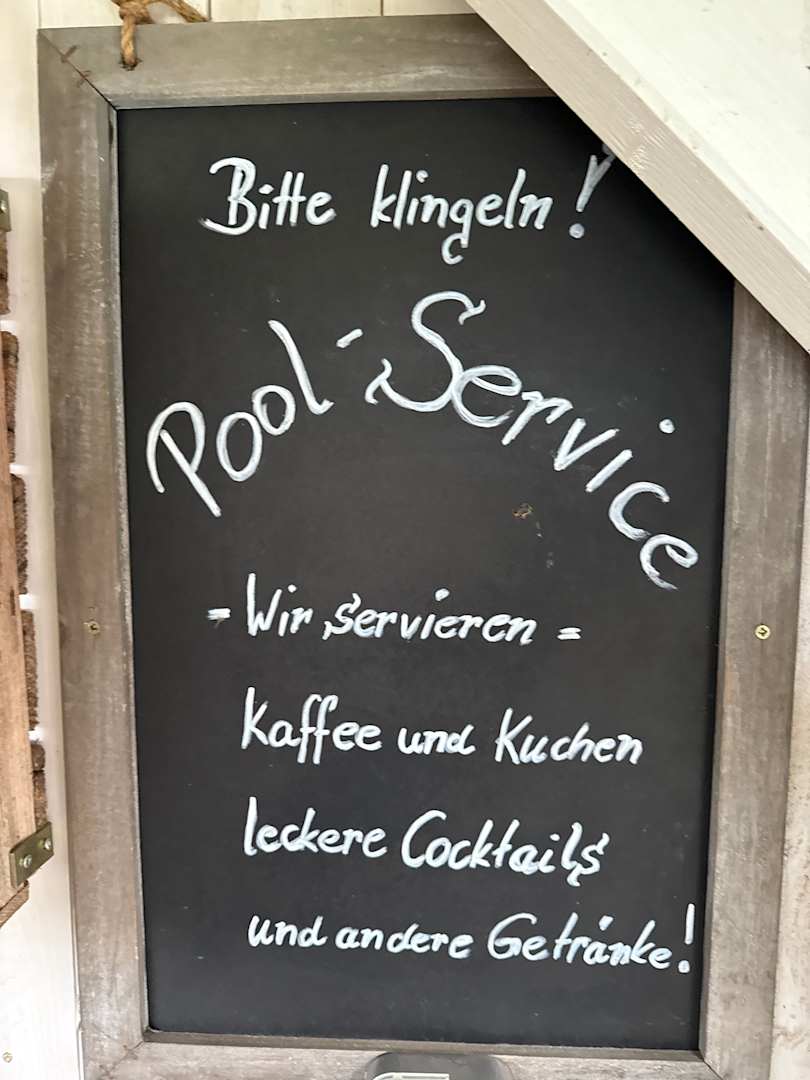 Bitte klingeln!
Pool-Service
- Wir servieren =
Kaffee und Kuchen
leckere Cocktails
und andere Getränke!